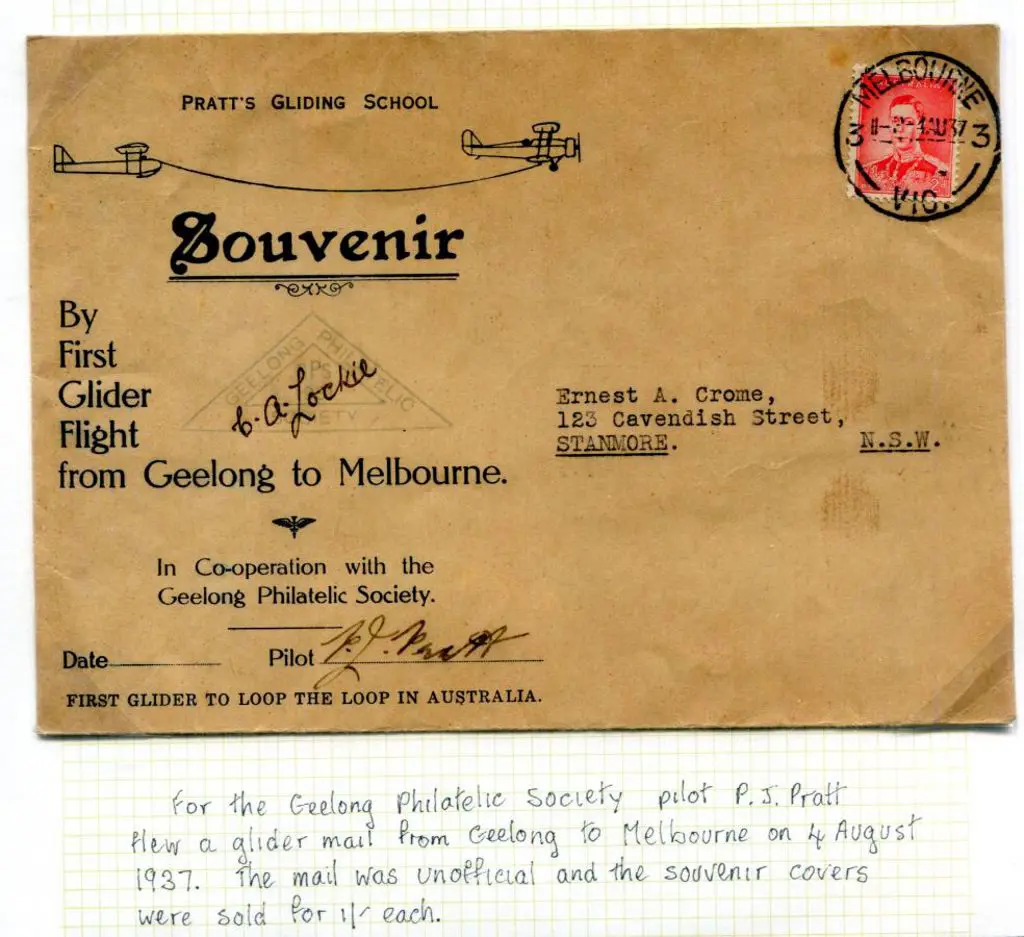 PRATT'S GLIDING SCHOOL
MELBOURNE
3 11-2-4AU37 3
VIC.
Souvenir
By
First
Glider
Flight
from Geelong to Melbourne.
GEELONG PHILATELIC
PS
C. A. Lockie
Ernest A. Crome,
123 Cavendish Street,
STANMORE. N.S.W.
In Co-operation with the
Geelong Philatelic Society.
Date Pilot P. J. Pratt
FIRST GLIDER TO LOOP THE LOOP IN AUSTRALIA.
For the Geelong Philatelic Society pilot P. J. Pratt
flew a glider mail from Geelong to Melbourne on 4 August
1937. The mail was unofficial and the souvenir covers
were sold for 1/- each.